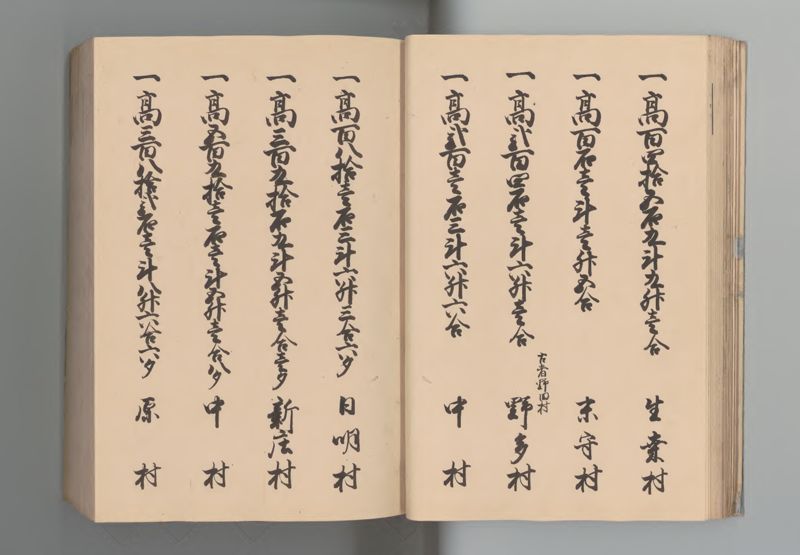 一高百四拾五石九斗九升壱合 生葉村
一高百石壱斗壱升五合 末守村
古者野田村
一高弐百四石壱斗六升壱合 野多村
一高弐百壱石三斗六升六合 中村
一高百八拾壱石三斗六升三合六夕 日明村
一高三百九拾石九斗五升壱合壱夕 新庄村
一高五百九拾壱石壱斗五升壱合八夕 中村
一高三百八拾弐石壱斗八升六合六夕 原村